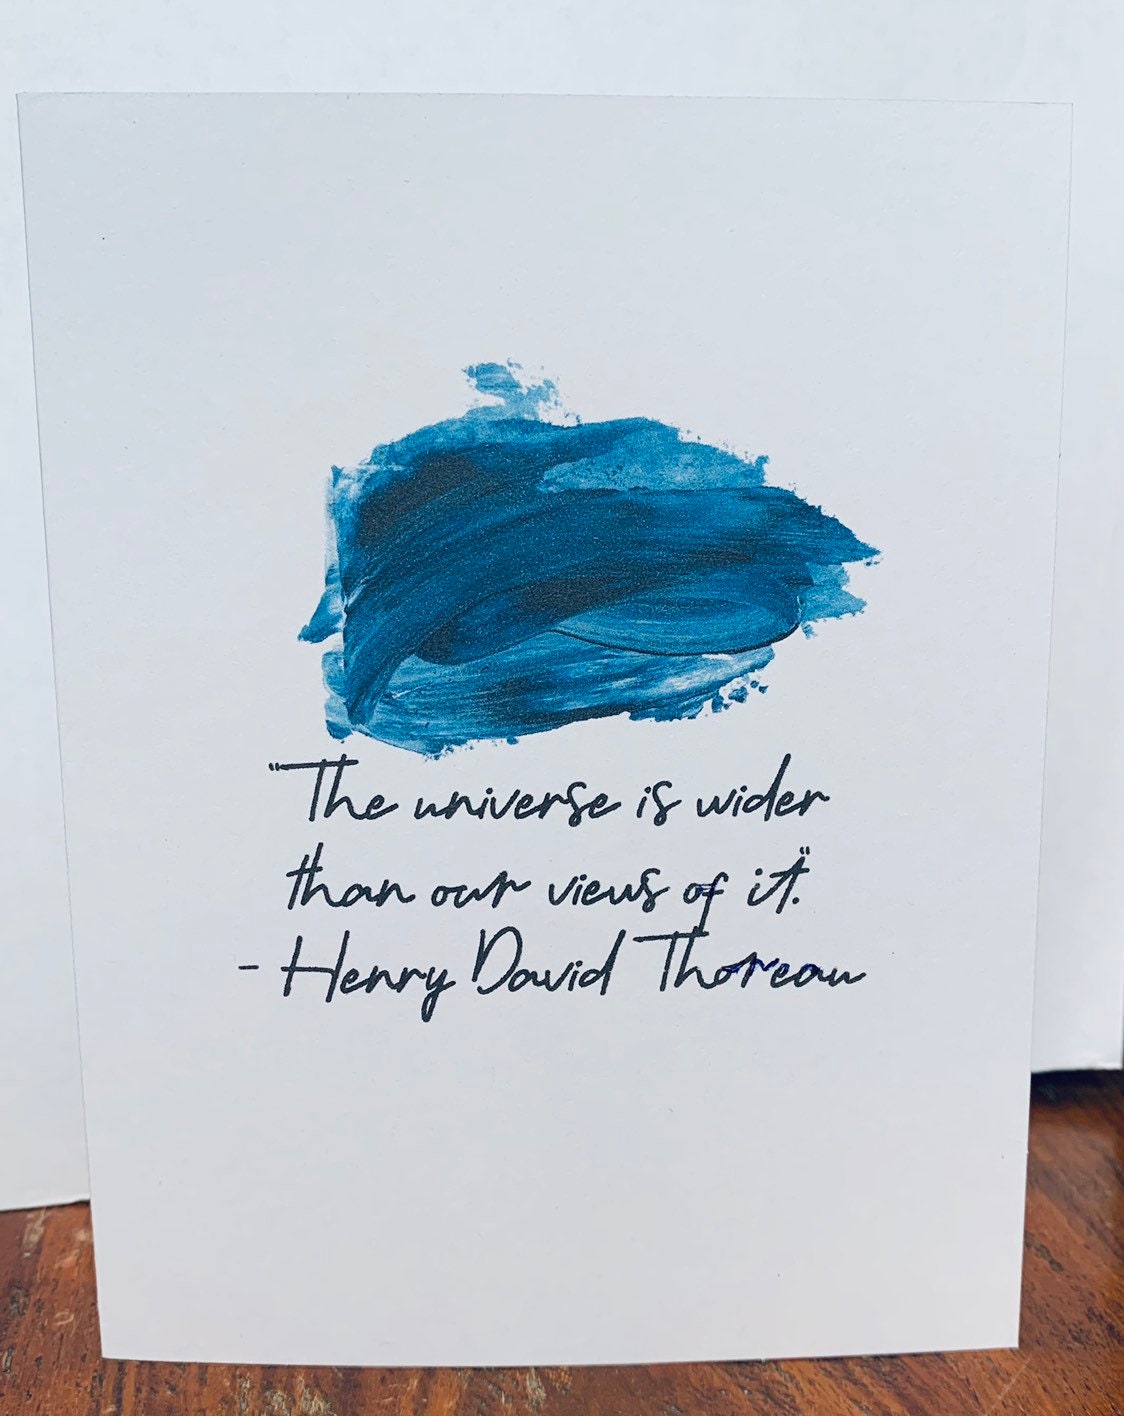 "The universe is wider
than our views of it."
- Henry David Thoreau